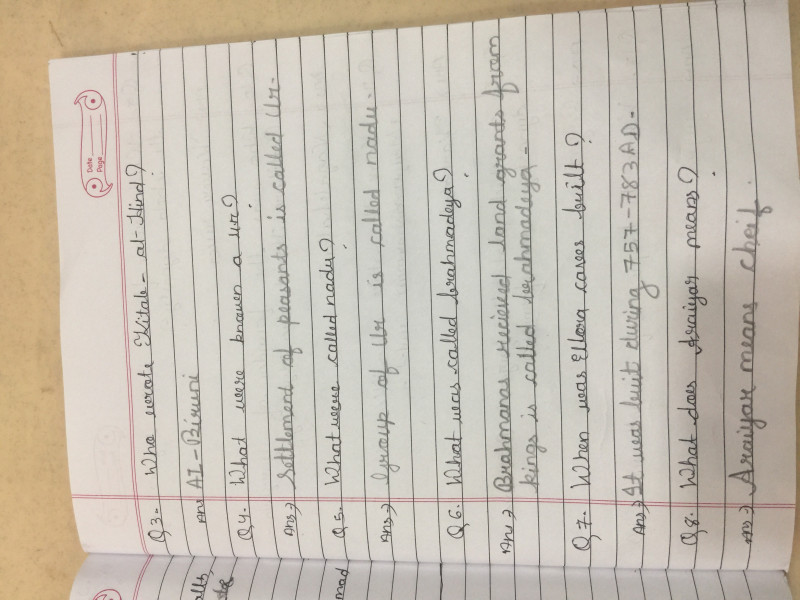 Date
Page
Q3. Who wrote Kitab-al-Hind?
Ans Al-Biruni
Q4. What were known a Ur?
Ans→ Settlement of peasants is called Ur.
Q5. What were called nadu?
Ans→ Group of Ur is called nadu.
Q6. What was called brahmadeya?
Ans→ Brahmanas recieved land grants from
kings is called brahmadeya.
Q7. When was Ellora caves built?
Ans→ It was buit during 757-783AD.
Q8. What does Araiyar means?
Ans→ Araiyar means cheif.
alls,
nad